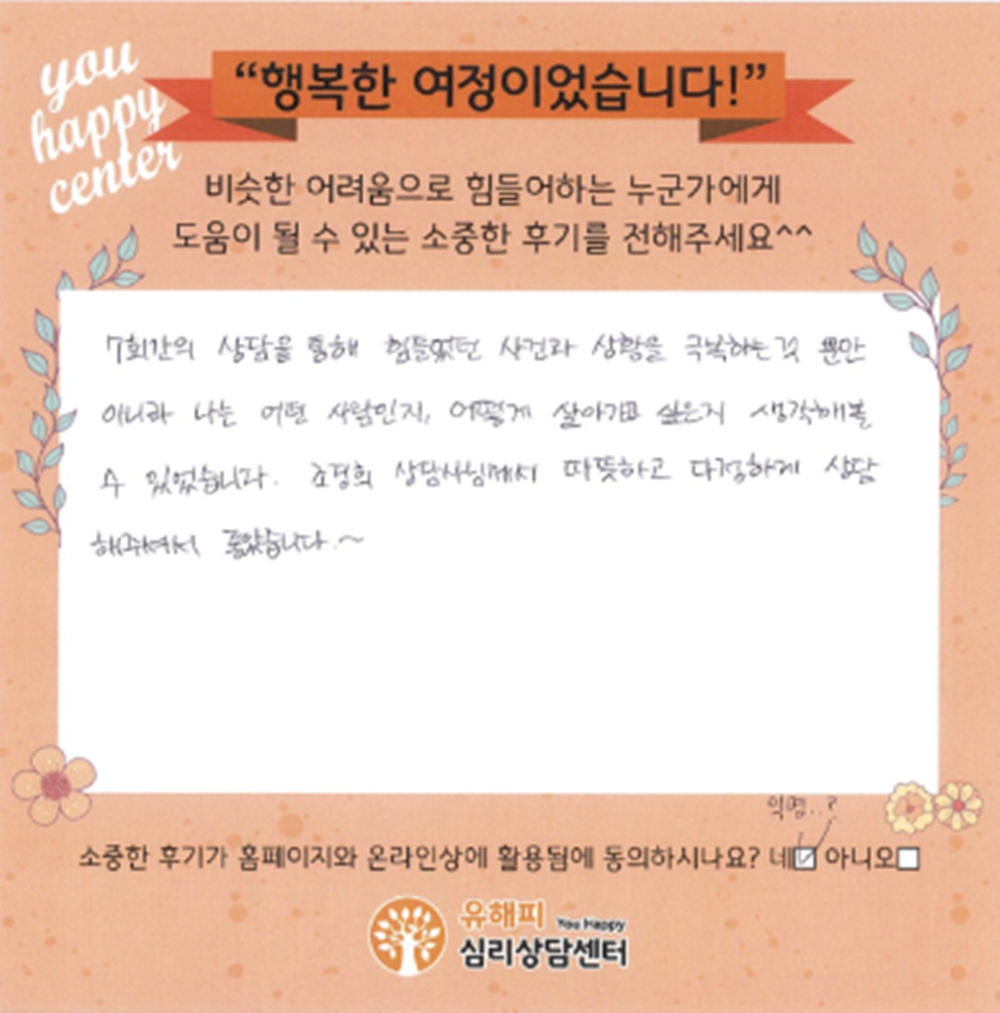 you
happy
center
“행복한 여정이었습니다!”
비슷한 어려움으로 힘들어하는 누군가에게
도움이 될 수 있는 소중한 후기를 전해주세요^^
7회간의 상담을 통해 힘들었던 사건과 상황을 극복하는 것 뿐만
아니라 나는 어떤 사람인지, 어떻게 살아가고 싶은지 생각해볼
수 있었습니다. 조경희 상담사님께서 따뜻하고 다정하게 상담
해주셔서 좋았습니다.~
익명..?
소중한 후기가 홈페이지와 온라인상에 활용됨에 동의하시나요? 네☑ 아니오☐
유해피 You Happy
심리상담센터